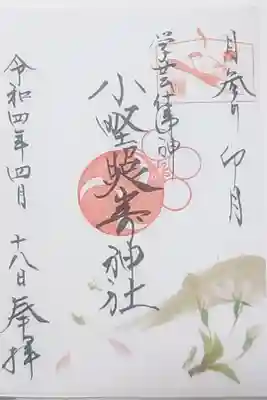 月参り 卯月
学芸健神
小野照崎神社
令和四年四月十八日 奉拝